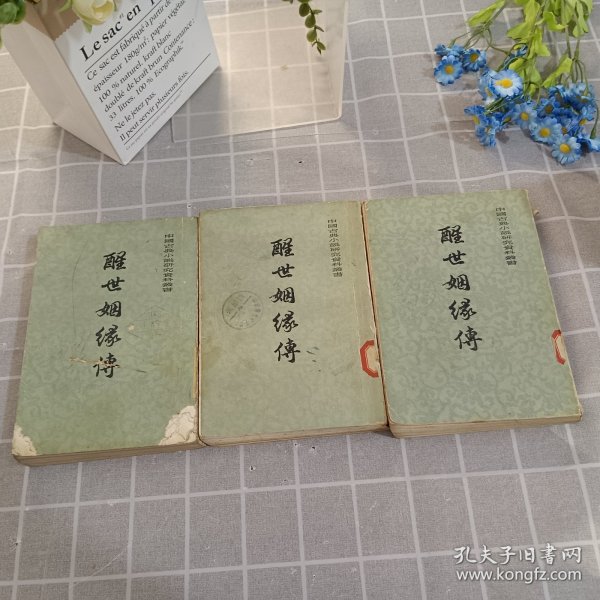 Le sac "en
Ce sac est fabriqué à partir de
épaisseur 180g/m²; papier végétal
100 % naturel, kraft blanc
doublé de kraft brun. Contenance :
33 litres. 100 % Ecognpack"
Ne le jetez pas.
Il peut servir plusieurs fois.
中國古典小説研究資料叢書
醒世姻缘傳
中國古典小説研究資料叢書
醒世姻缘傳
中國古典小説研究資料叢書
醒世姻缘傳
孔夫子旧書网
www.kongfz.com